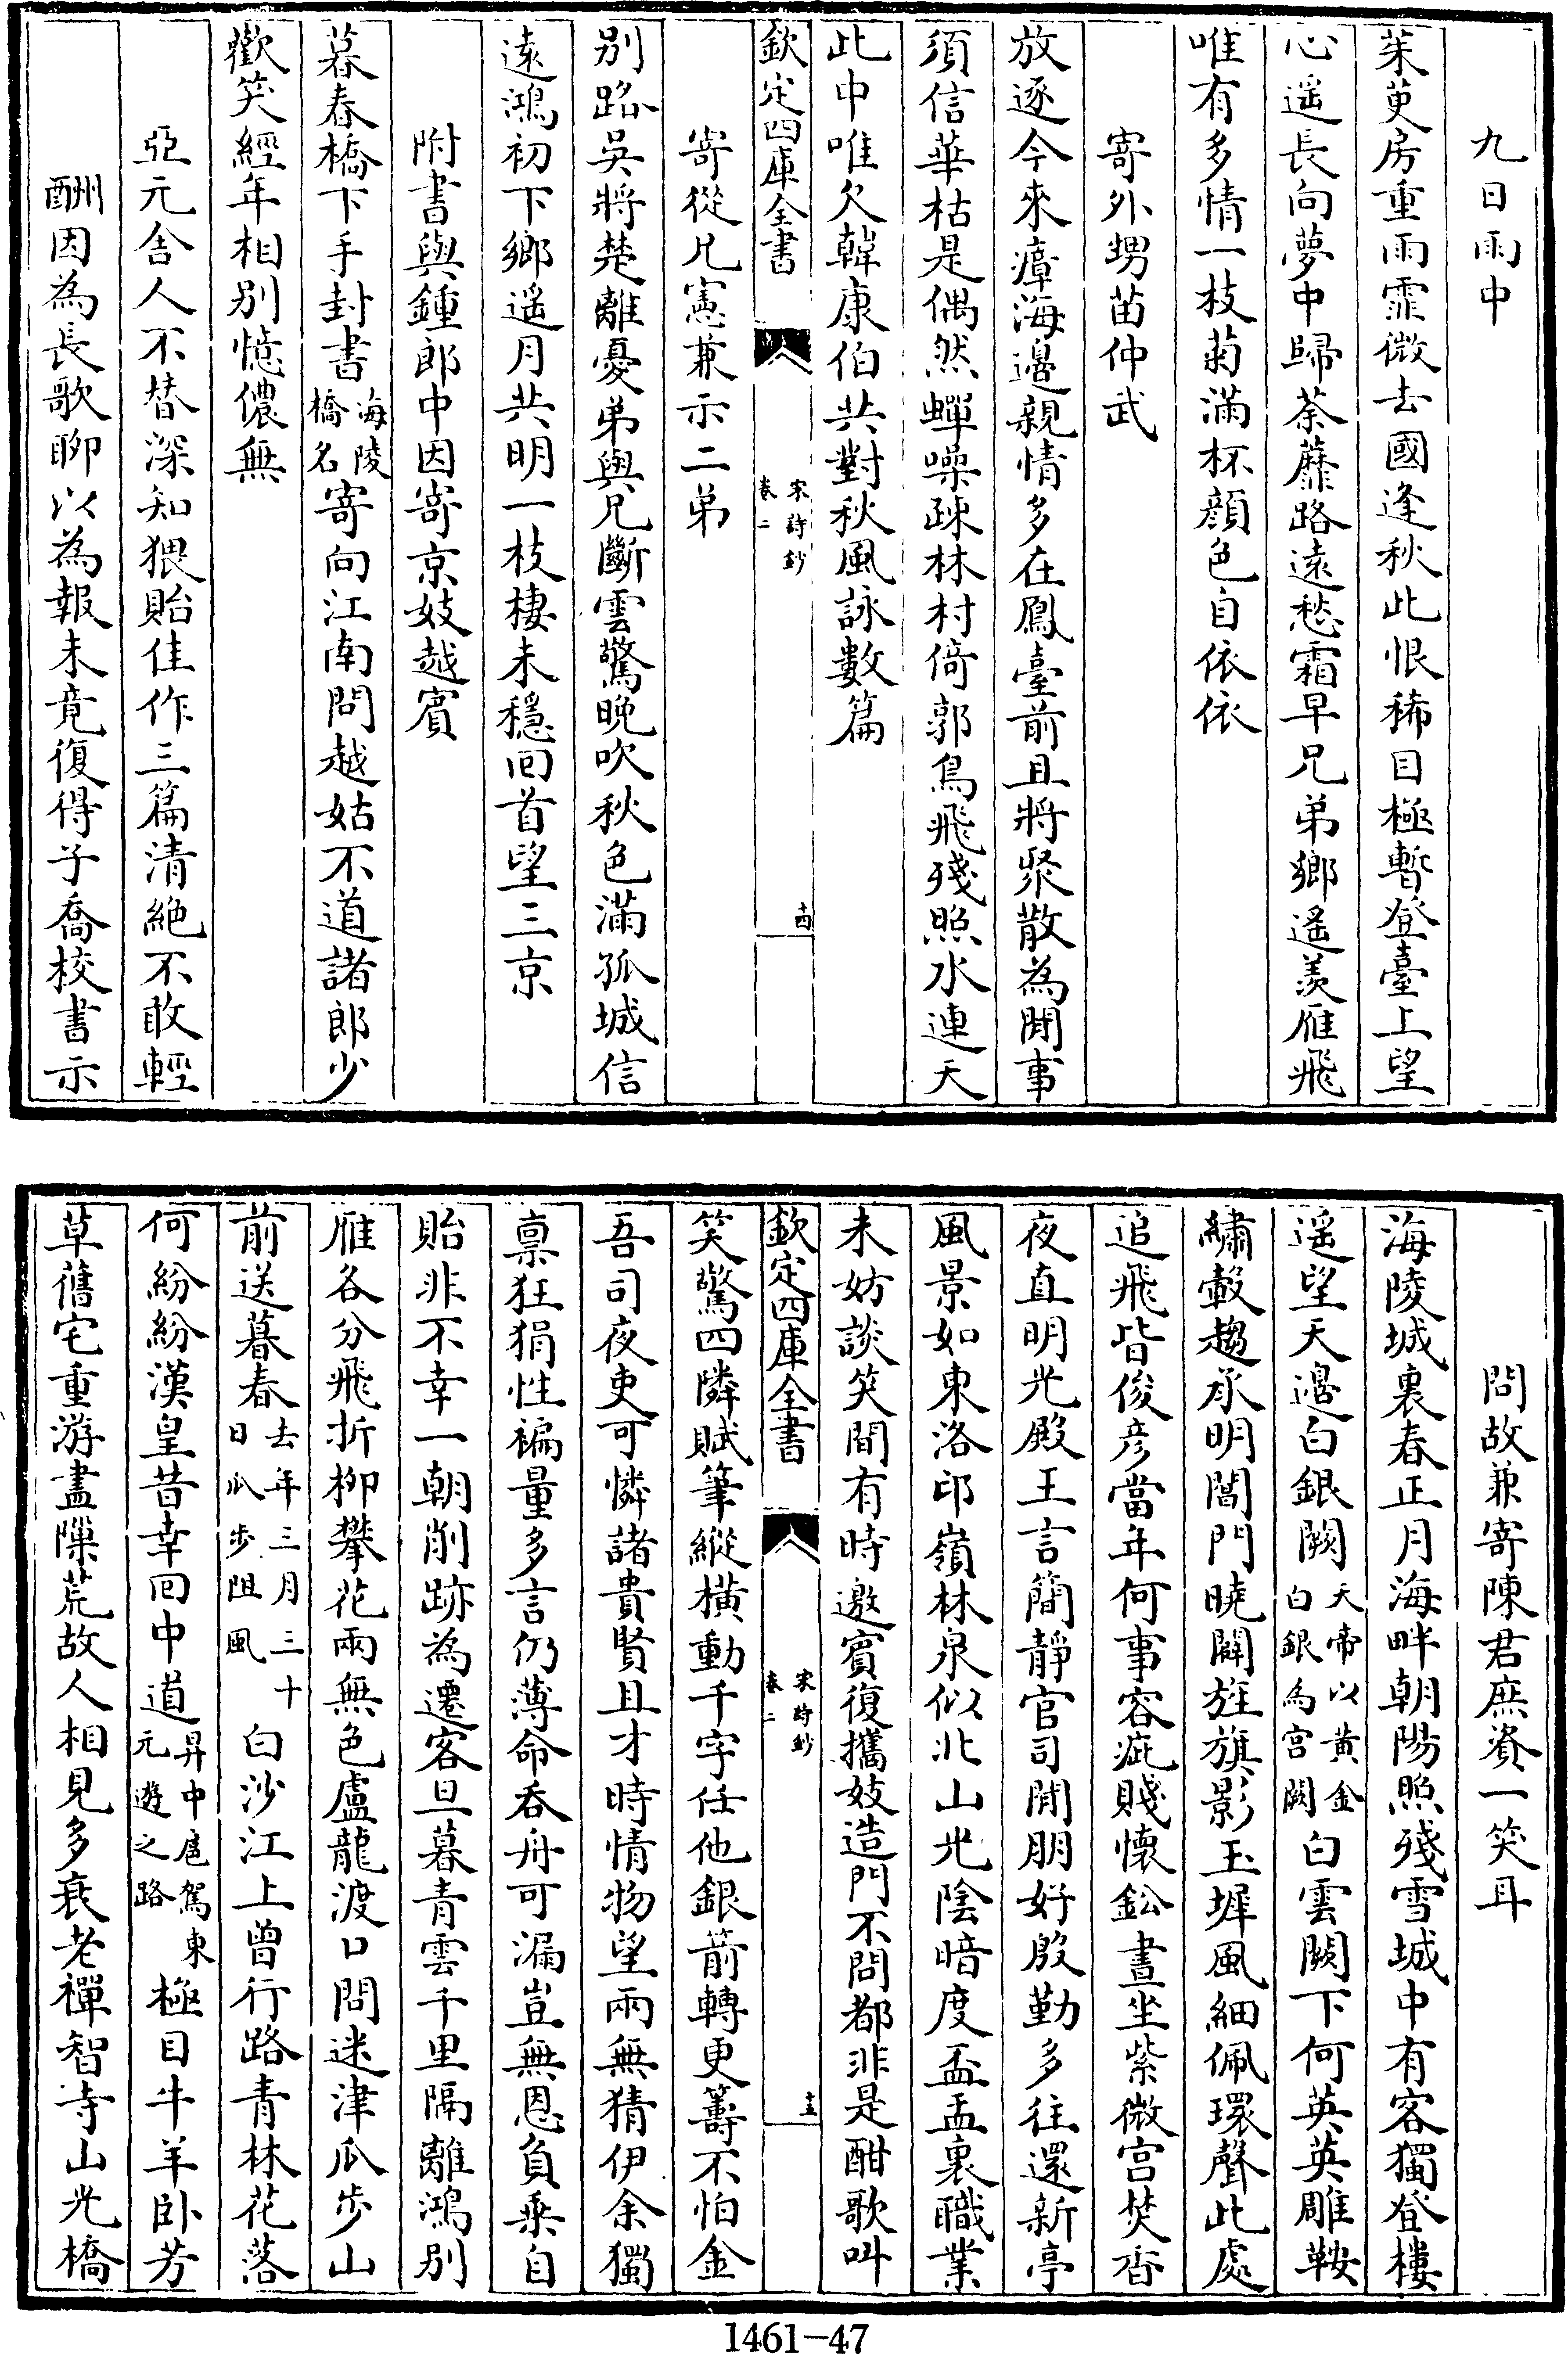 九日雨中
茱萸房重雨霏微去國逢秋此恨稀目極暫登臺上望
心遥長向夢中歸荼蘼路遠愁霜早兄弟鄉遥羨雁飛
唯有多情一枝菊滿杯顔色自依依
寄外甥苗仲武
放逐今來瘴海邊親情多在鳳臺前且將聚散為閒事
須信華枯是偶然蟬噪疎林村倚郭鳥飛殘照水連天
此中唯欠韓康伯共對秋風詠數篇
欽定四庫全書
宋詩鈔
卷二
十四
寄從兄憲兼示二弟
別路吳將楚離憂弟與兄斷雲驚晚吹秋色滿孤城信
遠鴻初下鄉遥月共明一枝棲未穩回首望三京
附書與鍾郎中因寄京妓越賓
暮春橋下手封書海陵橋名寄向江南問越姑不道諸郎少
歡笑經年相別憶儂無
亞元舍人不替深知猥貽佳作三篇清絶不敢輕
酬因為長歌聊以為報未竟復得子喬校書示
問故兼寄陳君庶資一笑耳
海陵城裏春正月海畔朝陽照殘雪城中有客獨登樓
遥望天邊白銀闕天帝以黄金白銀為宮闕白雲闕下何英英雕鞍
繡轂趨承明閶門曉闢旌旗影玉墀風細佩環聲此處
追飛皆俊彦當年何事容疵賤懷鈆晝坐紫微宮焚香
夜直明光殿王言簡靜官司閒朋好殷勤多往還新亭
風景如東洛邙嶺林泉似北山光陰暗度盃盂裏職業
未妨談笑間有時邀賓復攜妓造門不問都非是酣歌叫
欽定四庫全書
宋詩鈔
卷二
十五
笑驚四隣賦筆縱橫動千字任他銀箭轉更籌不怕金
吾司夜吏可憐諸貴賢且才時情物望兩無猜伊余獨
禀狂狷性褊量多言仍薄命吞舟可漏豈無恩負乗自
貽非不幸一朝削跡為遷客旦暮青雲千里隔離鴻別
雁各分飛折柳攀花兩無色盧龍渡口問迷津瓜步山
前送暮春去年三月三十日瓜步阻風白沙江上曾行路青林花落
何紛紛漢皇昔幸回中道昇中扈駕東元遊之路極目牛羊卧芳
草舊宅重游盡隟荒故人相見多衰老禪智寺山光橋
1461-47